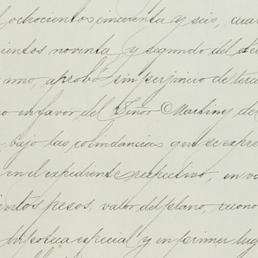 ochocientos cincuenta y seis, cua
cientos noventa y segundo del
uno, aprobó sin perjuicio de terce
en favor del Señor Martinez de
bajo las colindancias que se expre
en el expediente respectivo, en v
cientos pesos, valor del plano, cuono
hipoteca especial y en primer lug